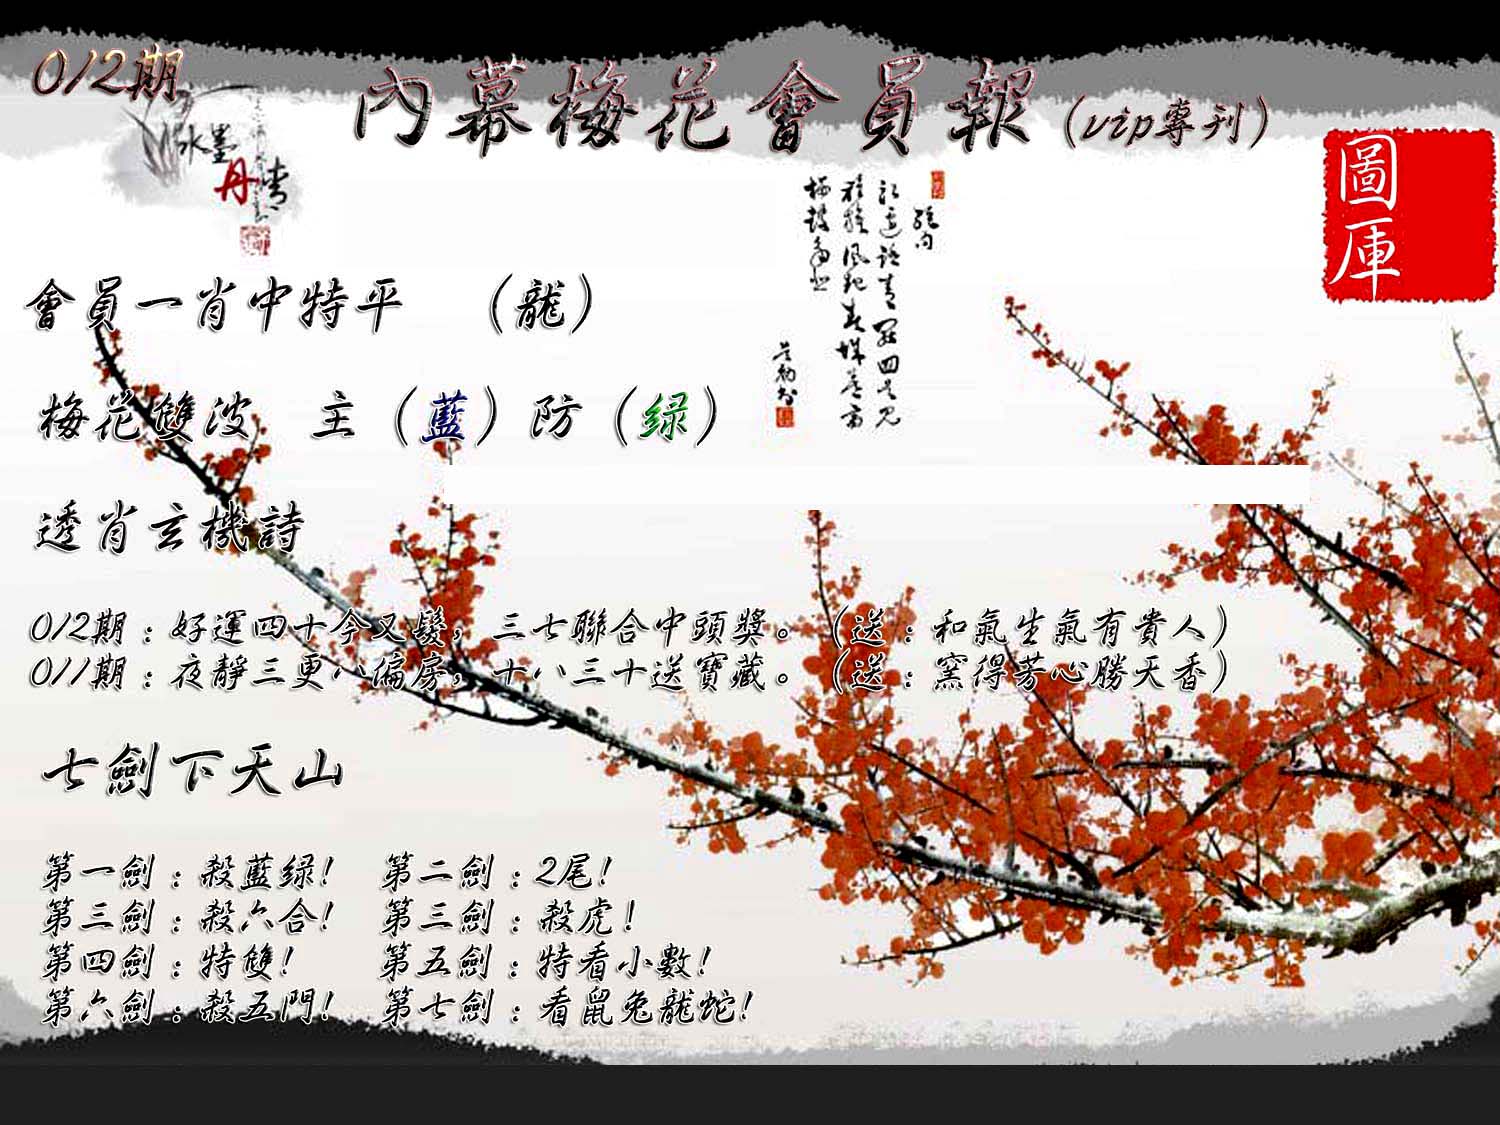 012期
內幕梅花會員報(vip專刊)
水墨
丹青
圖庫
會員一肖中特平 （龍）
梅花雙波 主（藍）防（绿）
透肖玄機詩
012期：好運四十今又發，三七聯合中頭獎。（送：和氣生氣有貴人）
011期：夜靜三更八偏房，十八三十送寶藏。（送：窯得芳心勝天香）
七劍下天山
第一劍：殺藍绿！ 第二劍：2尾！
第三劍：殺六合！ 第三劍：殺虎！
第四劍：特雙！ 第五劍：特看小數！
第六劍：殺五門！ 第七劍：看鼠兔龍蛇！